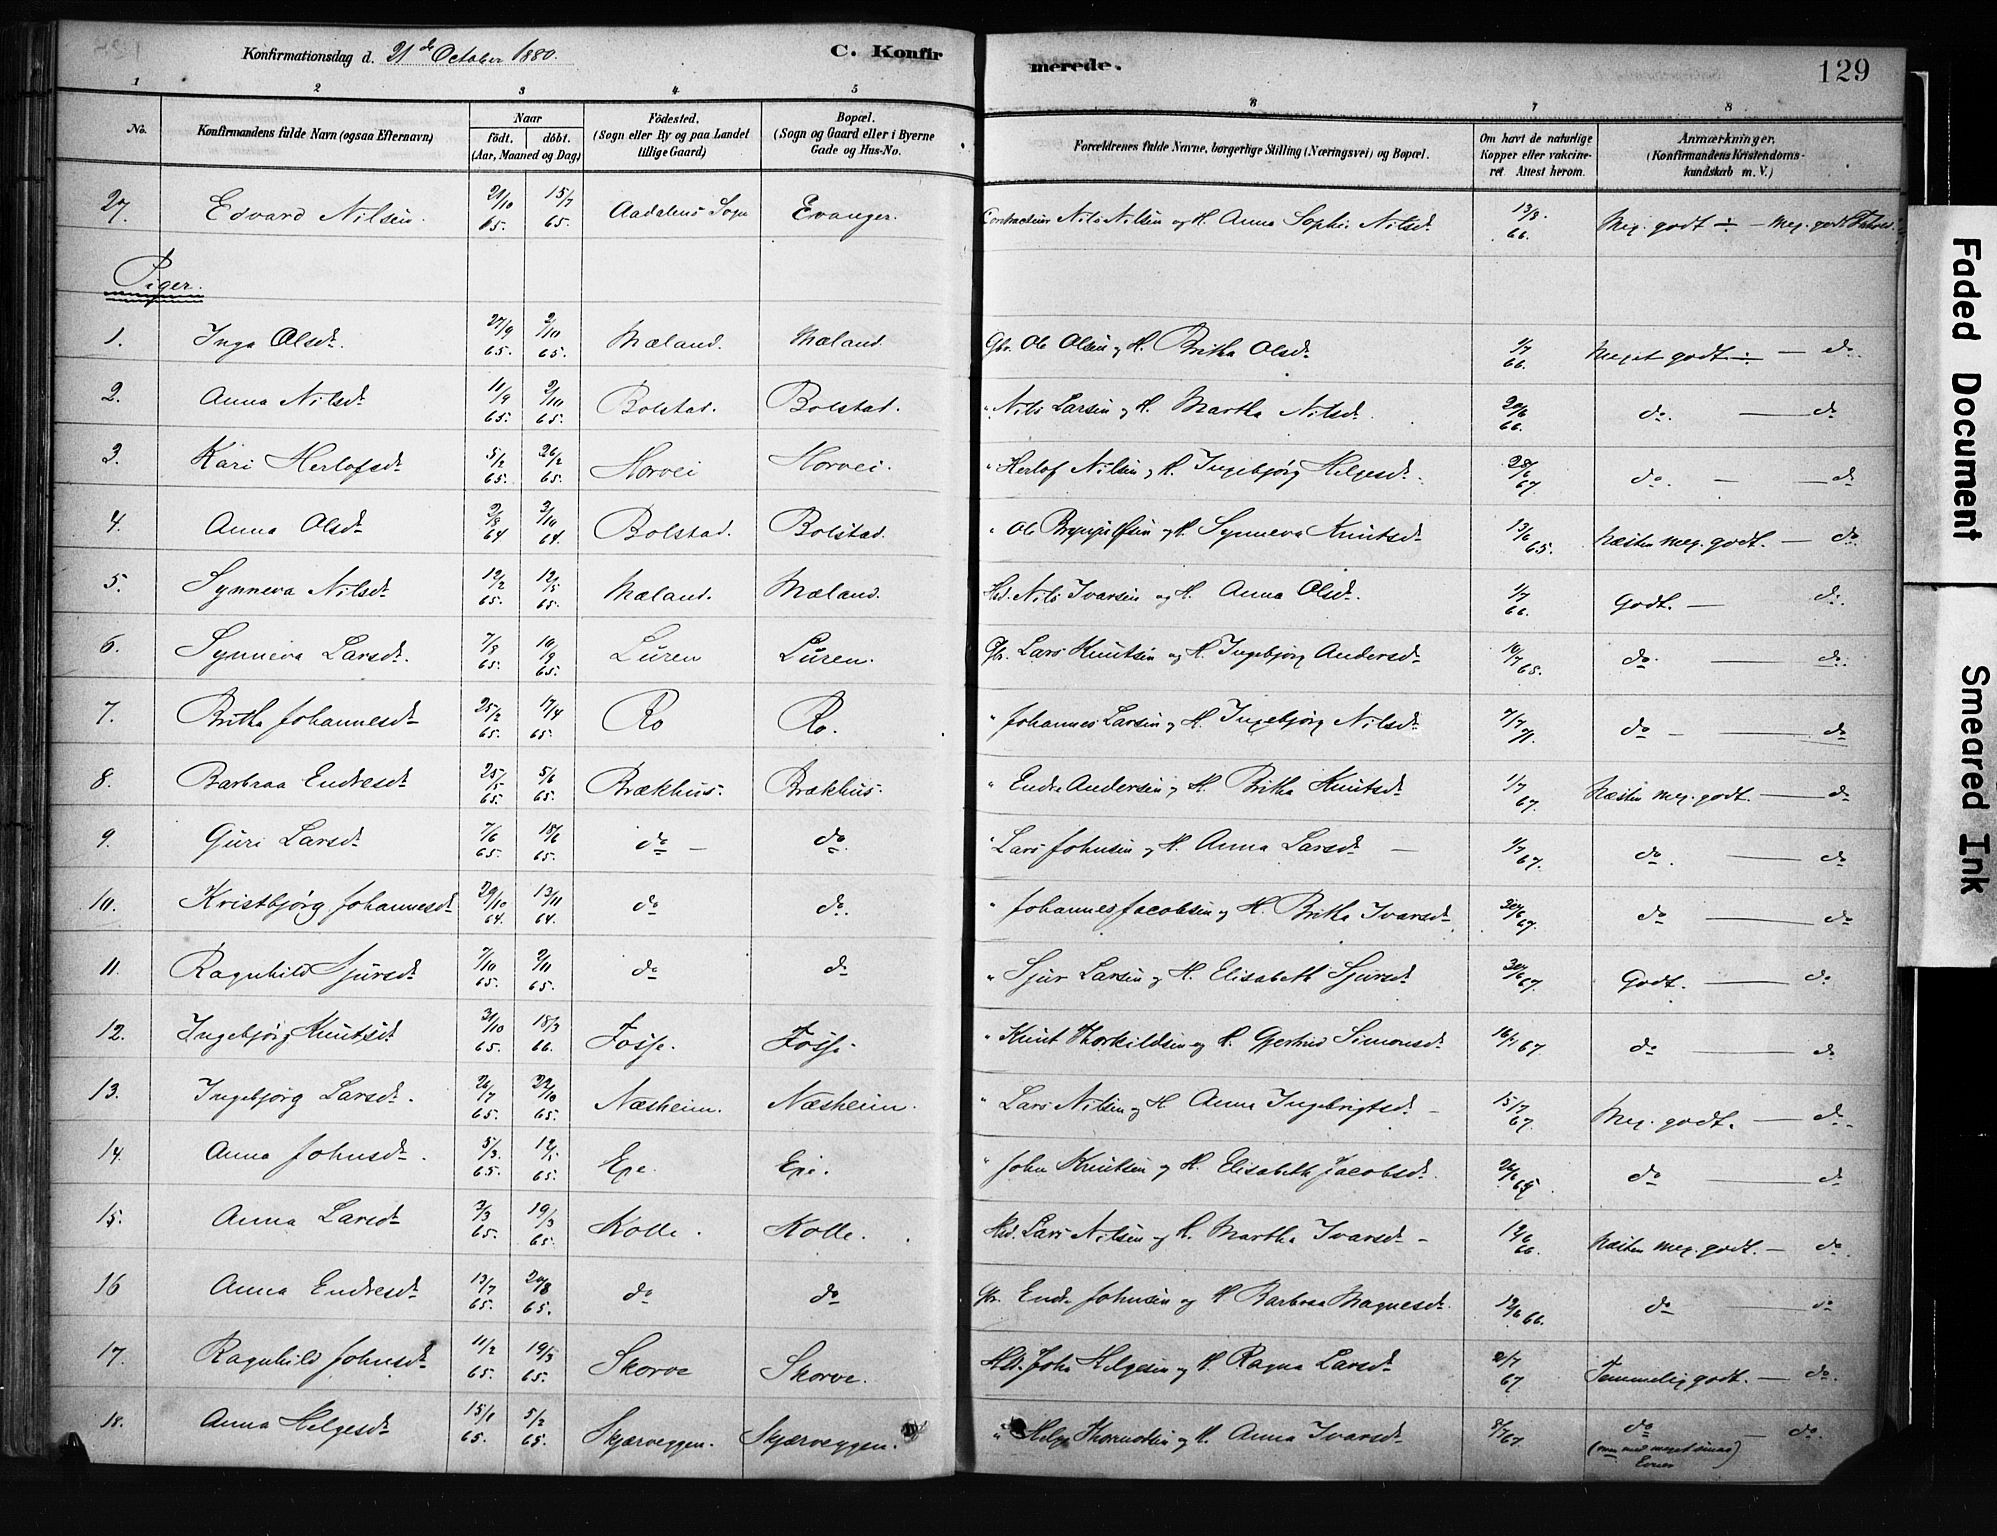 Konfirmationsdag d. 21de October 1880.
C. Konfirmerede.
129
1 2 3 4 5 6 7 8
No.
Konfirmandens fulde Navn (ogsaa Efternavn)
Naar
födt. döbt.
(Aar, Maaned og Dag)
Födested.
(Sogn eller By og paa Landet tillige Gaard)
Bopæl.
(Sogn og Gaard eller i Byerne Gade og Hus-No.
Forældrenes fulde Navne, borgerlige Stilling (Næringsvei) og Bopæl.
Om havt de naturlige Kopper eller vakcineret Attest herom.
Anmærkninger.
(Konfirmandens Kristendomskundskab m. V.)
27. Edvard Nilsen. 21/10 65. 15/7 65. Aadalens Sogn Evanger. Contracteur Nils Nilsen og H. Anna Sophie Nilsdt 13/8. 66. Meg. godt ÷ — Meg. godt Forhold
Piger.
1. Inga Olsdt. 27/9 65. 2/10 65. Mæland. Mæland Gbr. Ole Olsen og H. Britha Olsdt 1/7 66. Meget godt ÷ — do.
2. Anna Nilsdt 11/9 65. 2/10 65. Bolstad. Bolstad. " Nils Larsen og H. Martha Nilsdt. 20/6 66. do. — do
3. Kari Herlofsdt 5/2 65. 26/2 65. Horvei Horvei. " Herlof Nilsen og H. Ingebjørg Helgesdt. 28/6 67. do. — do
4. Anna Olsdt 2/8 64 2/10 64. Bolstad. Bolstad. " Ole Brynjulfsen og H. Synneva Knutsdt 13/6 65. Næsten meg. godt. — do.
5. Synneva Nilsdt 12/2 65. 12/5 65. Mæland. Mæland. Hd. Nils Ivarsen og H. Anna Olsdt. 1/7 66. Godt. — do.
6. Synneva Larsdt. 7/8 65. 10/9 65. Luren Luren. Gbr. Lars Knutsen og H. Ingebjørg Andersdt 10/7 68. do. — do.
7. Britha Johannesdt 25/2 65. 17/4 65. Ro Ro. " Johannes Larsen og H. Ingebjørg Nilsdt. 7/7 71. do — do
8. Barbraa Endresdt 25/5 65. 5/6 65. Brækhus. Brækhus. " Endre Andersen og H. Britha Knutsdt 1/7 67. Næsten meg. godt. — do
9. Guri Larsdt 7/6 65. 18/6 65. do — do. " Lars Johnsen og H. Anna Larsdt — 1/7 67. do. — do
10. Kristbjørg Johannesdt 29/10 64. 13/11 64. do do. " Johannes Jacobsen og H. Britha Ivarsdt 30/6 67. do — do
11. Ragnhild Sjursdt 7/10 65. 2/11 65. do do " Sjur Larsen og H. Elisabeth Sjursdt 30/6 67. Godt. — do
12. Ingebjørg Knutsdt 31/10 65. 18/3 66. Fosse. Fosse. " Knut Thorkildsen og H. Gjertrud Simonsdt 16/7 67 do — do
13. Ingebjørg Larsdt. 26/7 65. 22/10 65. Næsheim. Næsheim. " Lars Nilsen og H. Anna Ingebrigtsdt — 15/7 67. Meg. godt. — do
14. Anna Johnsdt. 5/3 65. 12/5 65. Eie. Eie. " John Knutsen og H. Elisabeth Jacobsdt. do — do
15. Anna Larsdt 3/3 65. 19/3 65. Kolle. Kolle. Hd. Lars Nilsen og H. Martha Ivarsdt — 12/6 66. Næsten meg. godt. — do.
16 Anna Endresdt 13/7 65. 20/8 65. do do Gbr. Endre Johnsen og H. Barbraa Magnesdt. 12/6 66. do do
17. Ragnhild Johnsdt 11/2 65. 19/3 65. Skorve Skorve. Hd. John Helgesen og H. Ragna Larsdt 2/7 67 Temmelig godt. — do.
18. Anna Helgesdt 15/1 65. 5/2 65. Skjærveggen. Skjærveggen. " Helge Thormodsen og H. Anna Ivarsdt 8/7 67. do — do.
(men med meget smaa) Evner
Faded Document
Smeared Ink